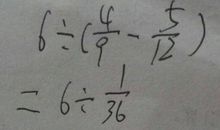 6÷(4/9-5/12)
=6÷1/36